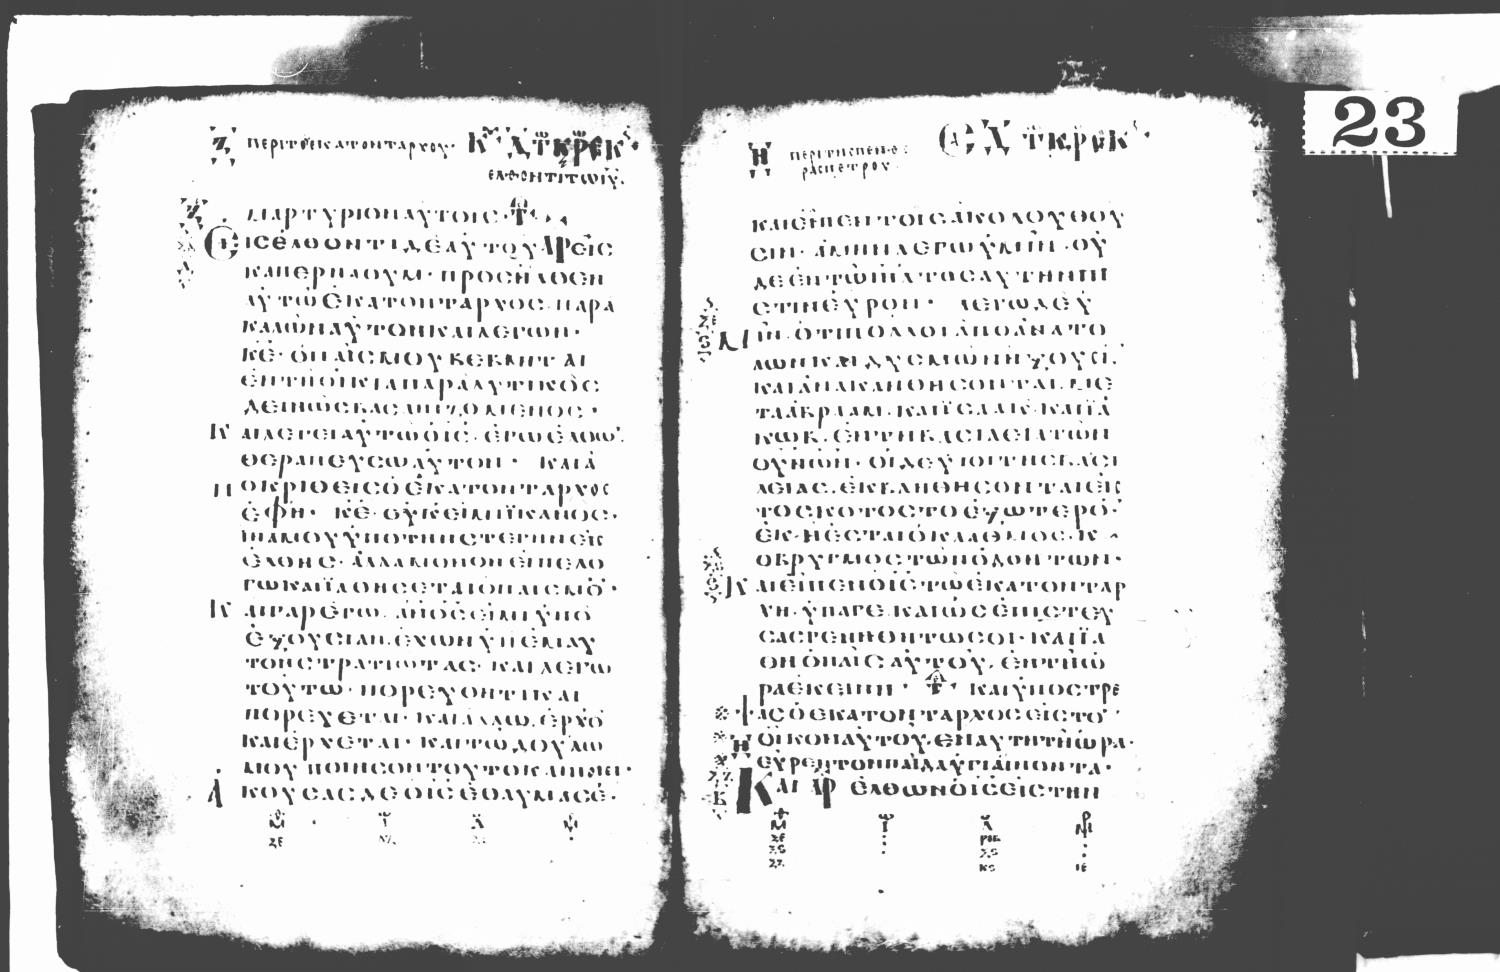 Ζ ΠΕΡΙ ΤΟΥ ΕΚΑΤΟΝΤΑΡΧΟΥ·
ΕΛΘΟΝΤΙ ΤΩ ΙΥ
ΜΑΡΤΥΡΙΟΝ ΑΥΤΟΙΣ·
ΕΙΣΕΛΘΟΝΤΙ ΔΕ ΑΥΤΟΥ ΑΡ ΕΙΣ
ΚΑΠΕΡΝΑΟΥΜ· ΠΡΟΣΗΛΘΕΝ
ΑΥΤΩ ΕΚΑΤΟΝΤΑΡΧΟΣ ΠΑΡΑ
ΚΑΛΩΝ ΑΥΤΟΝ ΚΑΙ ΛΕΓΩΝ·
ΚΕ· Ο ΠΑΙΣ ΜΟΥ ΒΕΒΛΗΤΑΙ
ΕΝ ΤΗ ΟΙΚΙΑ ΠΑΡΑΛΥΤΙΚΟΣ
ΔΕΙΝΩΣ ΒΑΣΑΝΙΖΟΜΕΝΟΣ·
ΚΑΙ ΛΕΓΕΙ ΑΥΤΩ Ο ΙΣ· ΕΓΩ ΕΛΘΩ
ΘΕΡΑΠΕΥΣΩ ΑΥΤΟΝ· ΚΑΙ Α
ΠΟΚΡΙΘΕΙΣ Ο ΕΚΑΤΟΝΤΑΡΧΟΣ
ΕΦΗ· ΚΕ· ΟΥΚ ΕΙΜΙ ΪΚΑΝΟΣ·
ΙΝΑ ΜΟΥ ΥΠΟ ΤΗΝ ΣΤΕΓΗΝ ΕΙΣ
ΕΛΘΗΣ· ΑΛΛΑ ΜΟΝΟΝ ΕΙΠΕ ΛΟ
ΓΩ ΚΑΙ ΪΑΘΗΣΕΤΑΙ Ο ΠΑΙΣ ΜΟΥ·
ΚΑΙ ΓΑΡ ΕΓΩ ΑΝΟΣ ΕΙΜΙ ΥΠΟ
ΕΞΟΥΣΙΑΝ· ΕΧΩΝ ΥΠ ΕΜΑΥ
ΤΟΝ ΣΤΡΑΤΙΩΤΑΣ· ΚΑΙ ΛΕΓΩ
ΤΟΥΤΩ· ΠΟΡΕΥΘΗΤΙ ΚΑΙ
ΠΟΡΕΥΕΤΑΙ· ΚΑΙ ΑΛΛΩ· ΕΡΧΟΥ
ΚΑΙ ΕΡΧΕΤΑΙ· ΚΑΙ ΤΩ ΔΟΥΛΩ
ΜΟΥ ΠΟΙΗΣΟΝ ΤΟΥΤΟ ΚΑΙ ΠΟΙΕΙ·
ΑΚΟΥΣΑΣ ΔΕ Ο ΙΣ ΕΘΑΥΜΑΣΕ·
Η ΠΕΡΙ ΤΗΣ ΠΕΝΘΕ
ΡΑΣ ΠΕΤΡΟΥ
ΚΑΙ ΕΙΠΕΝ ΤΟΙΣ ΑΚΟΛΟΥΘΟΥ
ΣΙΝ· ΑΜΗΝ ΛΕΓΩ ΥΜΙΝ· ΟΥ
ΔΕ ΕΝ ΤΩ ΙΗΛ ΤΟΣΑΥΤΗΝ ΠΙ
ΣΤΙΝ ΕΥΡΟΝ· ΛΕΓΩ ΔΕ Υ
ΜΙΝ· ΟΤΙ ΠΟΛΛΟΙ ΑΠΟ ΑΝΑΤΟ
ΛΩΝ ΚΑΙ ΔΥΣΜΩΝ ΗΞΟΥΣΙ·
ΚΑΙ ΑΝΑΚΛΙΘΗΣΟΝΤΑΙ ΜΕ
ΤΑ ΑΒΡΑΑΜ· ΚΑΙ ΪΣΑΑΚ· ΚΑΙ ΪΑ
ΚΩΒ· ΕΝ ΤΗ ΒΑΣΙΛΕΙΑ ΤΩΝ
ΟΥΝΩΝ· ΟΙ ΔΕ ΥΙΟΙ ΤΗΣ ΒΑΣΙ
ΛΕΙΑΣ· ΕΚΒΛΗΘΗΣΟΝΤΑΙ ΕΙΣ
ΤΟ ΣΚΟΤΟΣ ΤΟ ΕΞΩΤΕΡΟΝ·
ΕΚΕΙ ΕΣΤΑΙ Ο ΚΛΑΘΜΟΣ· Κ
Ο ΒΡΥΓΜΟΣ ΤΩΝ ΟΔΟΝΤΩΝ·
ΚΑΙ ΕΙΠΕΝ Ο ΙΣ ΤΩ ΕΚΑΤΟΝΤΑΡ
ΧΗ· ΥΠΑΓΕ ΚΑΙ ΩΣ ΕΠΙΣΤΕΥ
ΣΑΣ ΓΕΝΗΘΗΤΩ ΣΟΙ· ΚΑΙ ΪΑ
ΘΗ Ο ΠΑΙΣ ΑΥΤΟΥ· ΕΝ ΤΗ Ω
ΡΑ ΕΚΕΙΝΗ· ΚΑΙ ΥΠΟΣΤΡΕ
ΨΑΣ Ο ΕΚΑΤΟΝΤΑΡΧΟΣ ΕΙΣ ΤΟ
ΟΙΚΟΝ ΑΥΤΟΥ· ΕΝ ΑΥΤΗ ΤΗ ΩΡΑ·
ΕΥΡΕΝ ΤΟΝ ΠΑΙΔΑ ΥΓΙΑΙΝΟΝΤΑ·
ΚΑΙ ΑΡ ΕΛΘΩΝ Ο ΙΣ ΕΙΣ ΤΗΝ
23